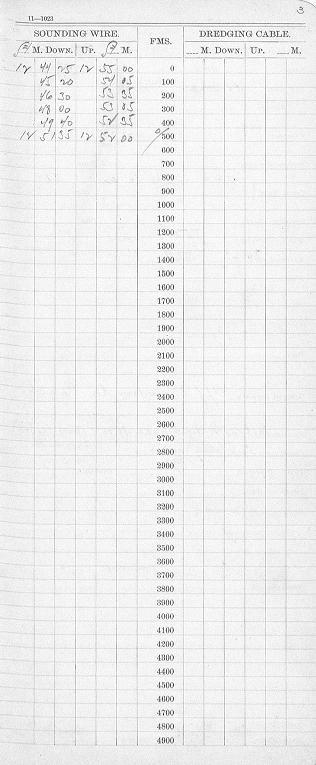 3
11—1023
SOUNDING WIRE. FMS. DREDGING CABLE.
P M. DOWN. UP. P M. M. DOWN. UP. M.
12 44 25 12 55 00 0
45 20 54 05 100
46 30 53 35 200
48 00 53 05 300
49 40 52 35 400
12 51 35 12 52 00 500
600
700
800
900
1000
1100
1200
1300
1400
1500
1600
1700
1800
1900
2000
2100
2200
2300
2400
2500
2600
2700
2800
2900
3000
3100
3200
3300
3400
3500
3600
3700
3800
3900
4000
4100
4200
4300
4400
4500
4600
4700
4800
4900